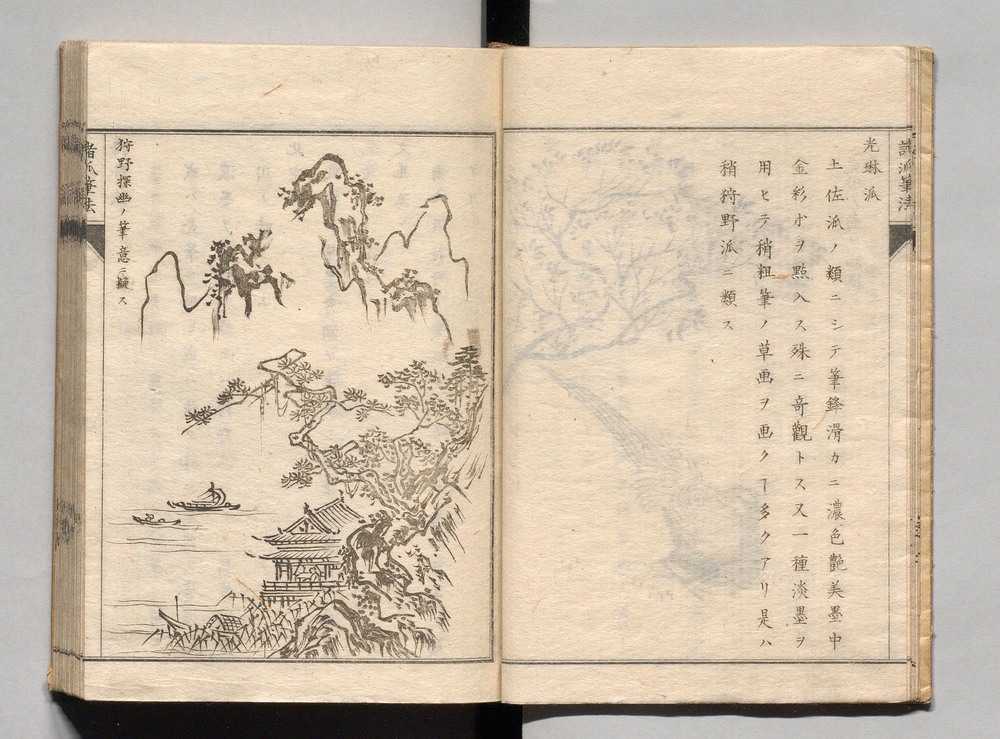 諸派筆法
光琳派
土佐派ノ類ニシテ筆鋒滑カニ濃色艶美墨中
金彩オヲ點入ス殊ニ奇觀トス又一種淡墨ヲ
用ヒテ稍粗筆ノ草画ヲ画クヿ多クアリ是ハ
稍狩野派ニ類ス
狩野探幽ノ筆意ニ擬ス
諸派筆法